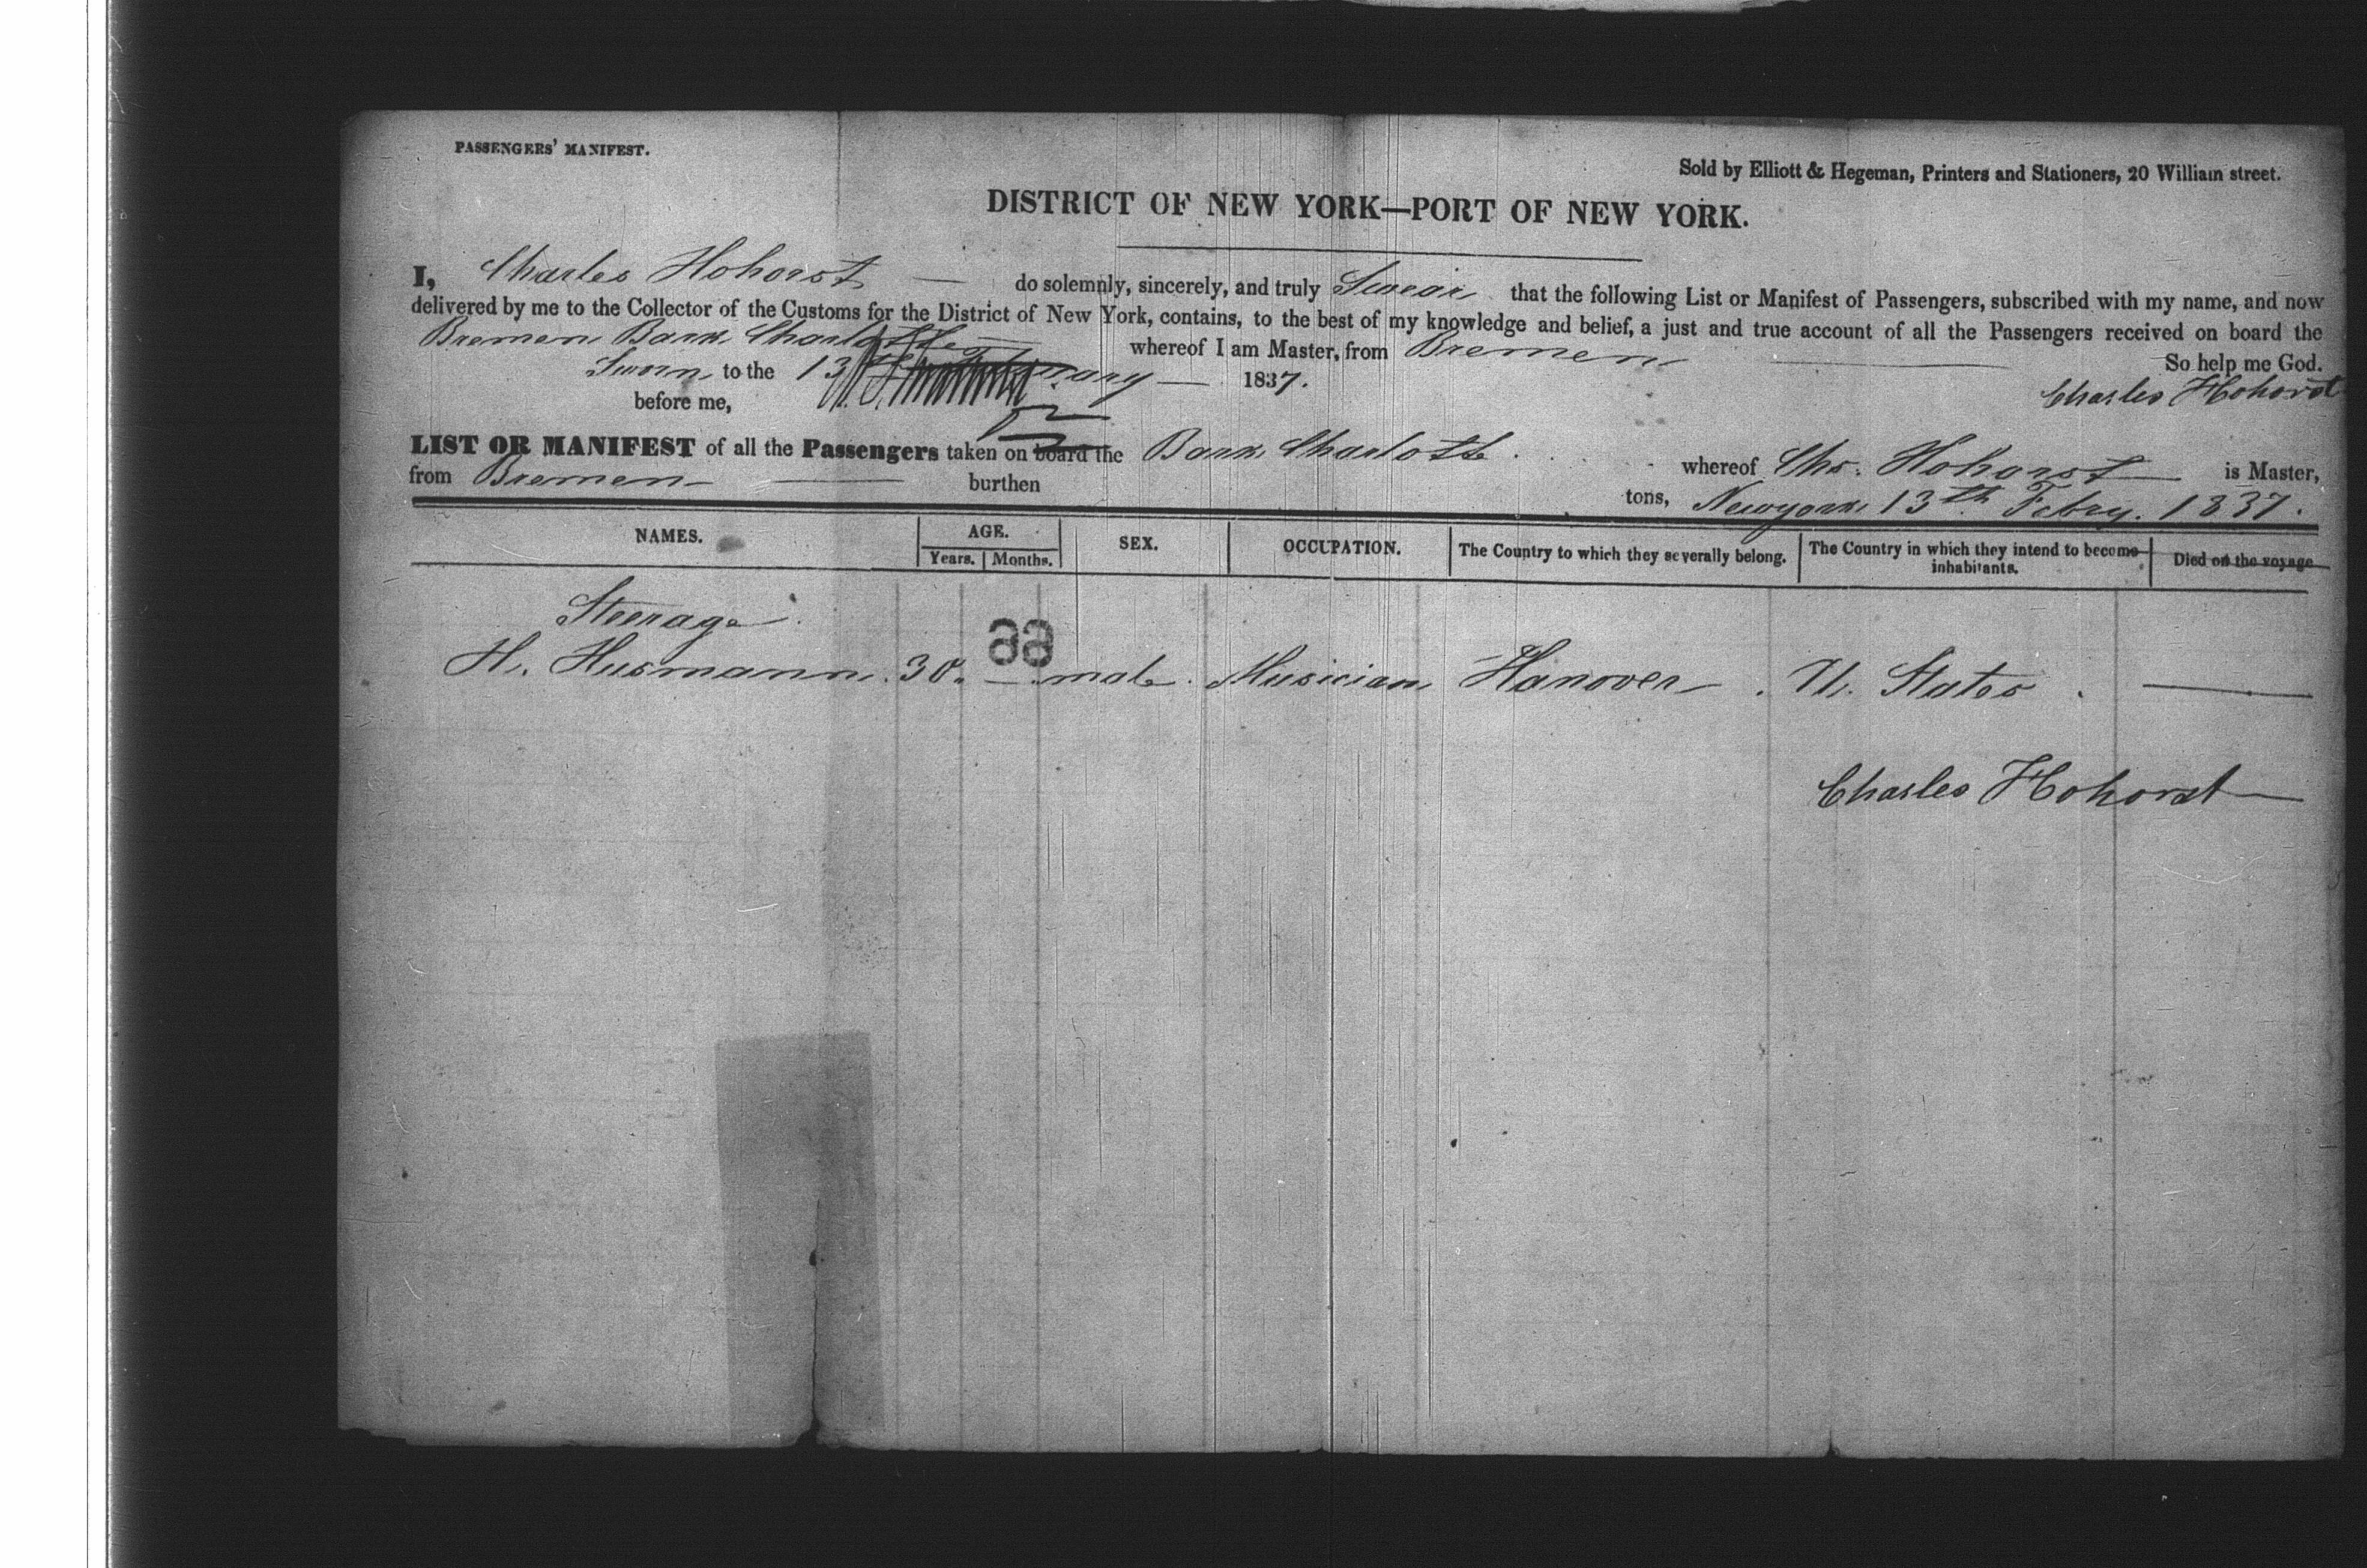 PASSENGERS' MANIFEST.
Sold by Elliott & Hegeman, Printers and Stationers, 20 William street.
DISTRICT OF NEW YORK—PORT OF NEW YORK.
I, Charles Hohorst — do solemnly, sincerely, and truly Swear that the following List or Manifest of Passengers, subscribed with my name, and now
delivered by me to the Collector of the Customs for the District of New York, contains, to the best of my knowledge and belief, a just and true account of all the Passengers received on board the
Bremen Bark Charlotte whereof I am Master, from Bremen So help me God.
Sworn to the 13th February — 1837.
before me, Charles Hohorst
LIST OR MANIFEST of all the Passengers taken on board the Bark Charlotte. whereof Chs. Hohorst is Master,
from Bremen — burthen tons, Newyork 13th Febry. 1837.
NAMES. AGE. Years. Months. SEX. OCCUPATION. The Country to which they severally belong. The Country in which they intend to become inhabitants. Died on the voyage
Steerage.
66
H. Husmann. 30. — male. Musician Hanover. U. States. —
Charles Hohorst